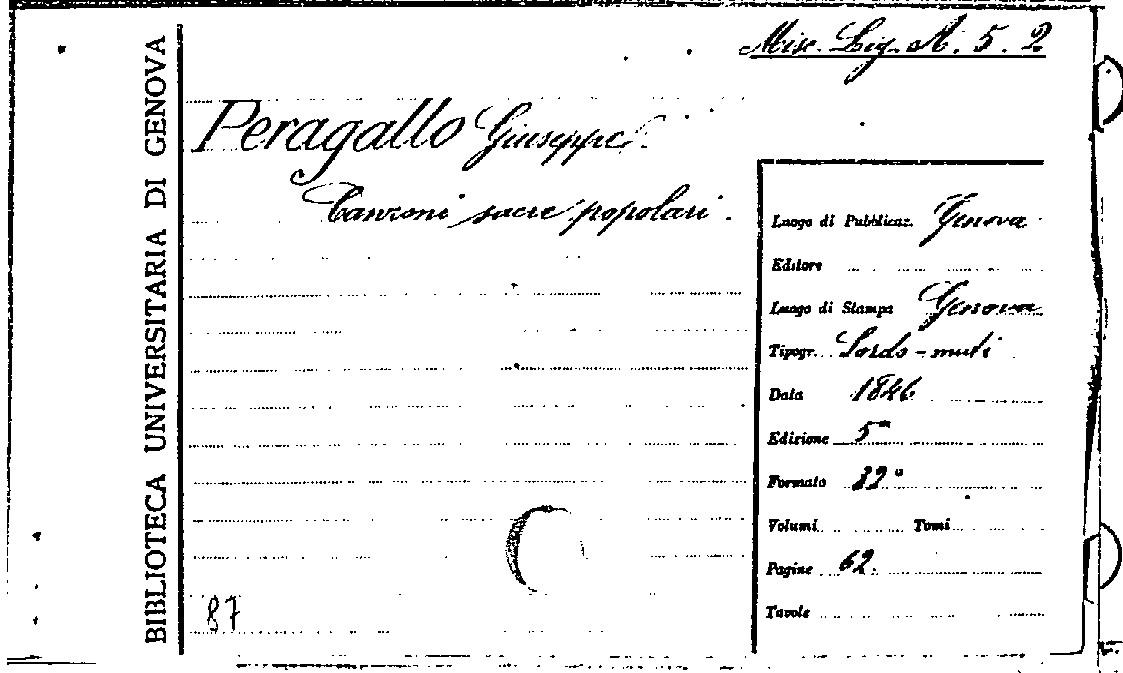 Misc. Lig. A. 5. 2
BIBLIOTECA UNIVERSITARIA DI GENOVA
Peragallo Giuseppe.
Canzoni sacre popolari.
Luogo di Pubblicaz. Genova
Editore
Luogo di Stampa Genova
Tipogr. Sordo-muti
Data 1846
Edizione 5ª
Formato 32°
Volumi Tomi
Pagine 62.
Tavole
87